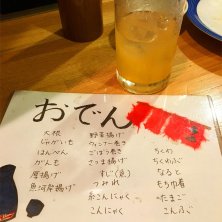 おでん
大根
じゃがいも
はんぺん
がんも
厚揚げ
魚河岸揚げ
野菜揚げ
ウィンナー巻き
ごぼう巻き
さつま揚げ
すじ(魚)
つみれ
糸こんにゃく
こんにゃく
ちくわ
ちくわぶ
なると
もち巾着
たまご
こんぶ